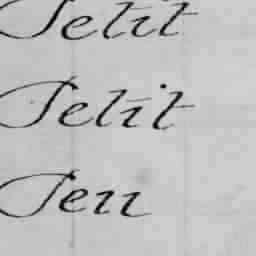 Petit
Petit
Peu